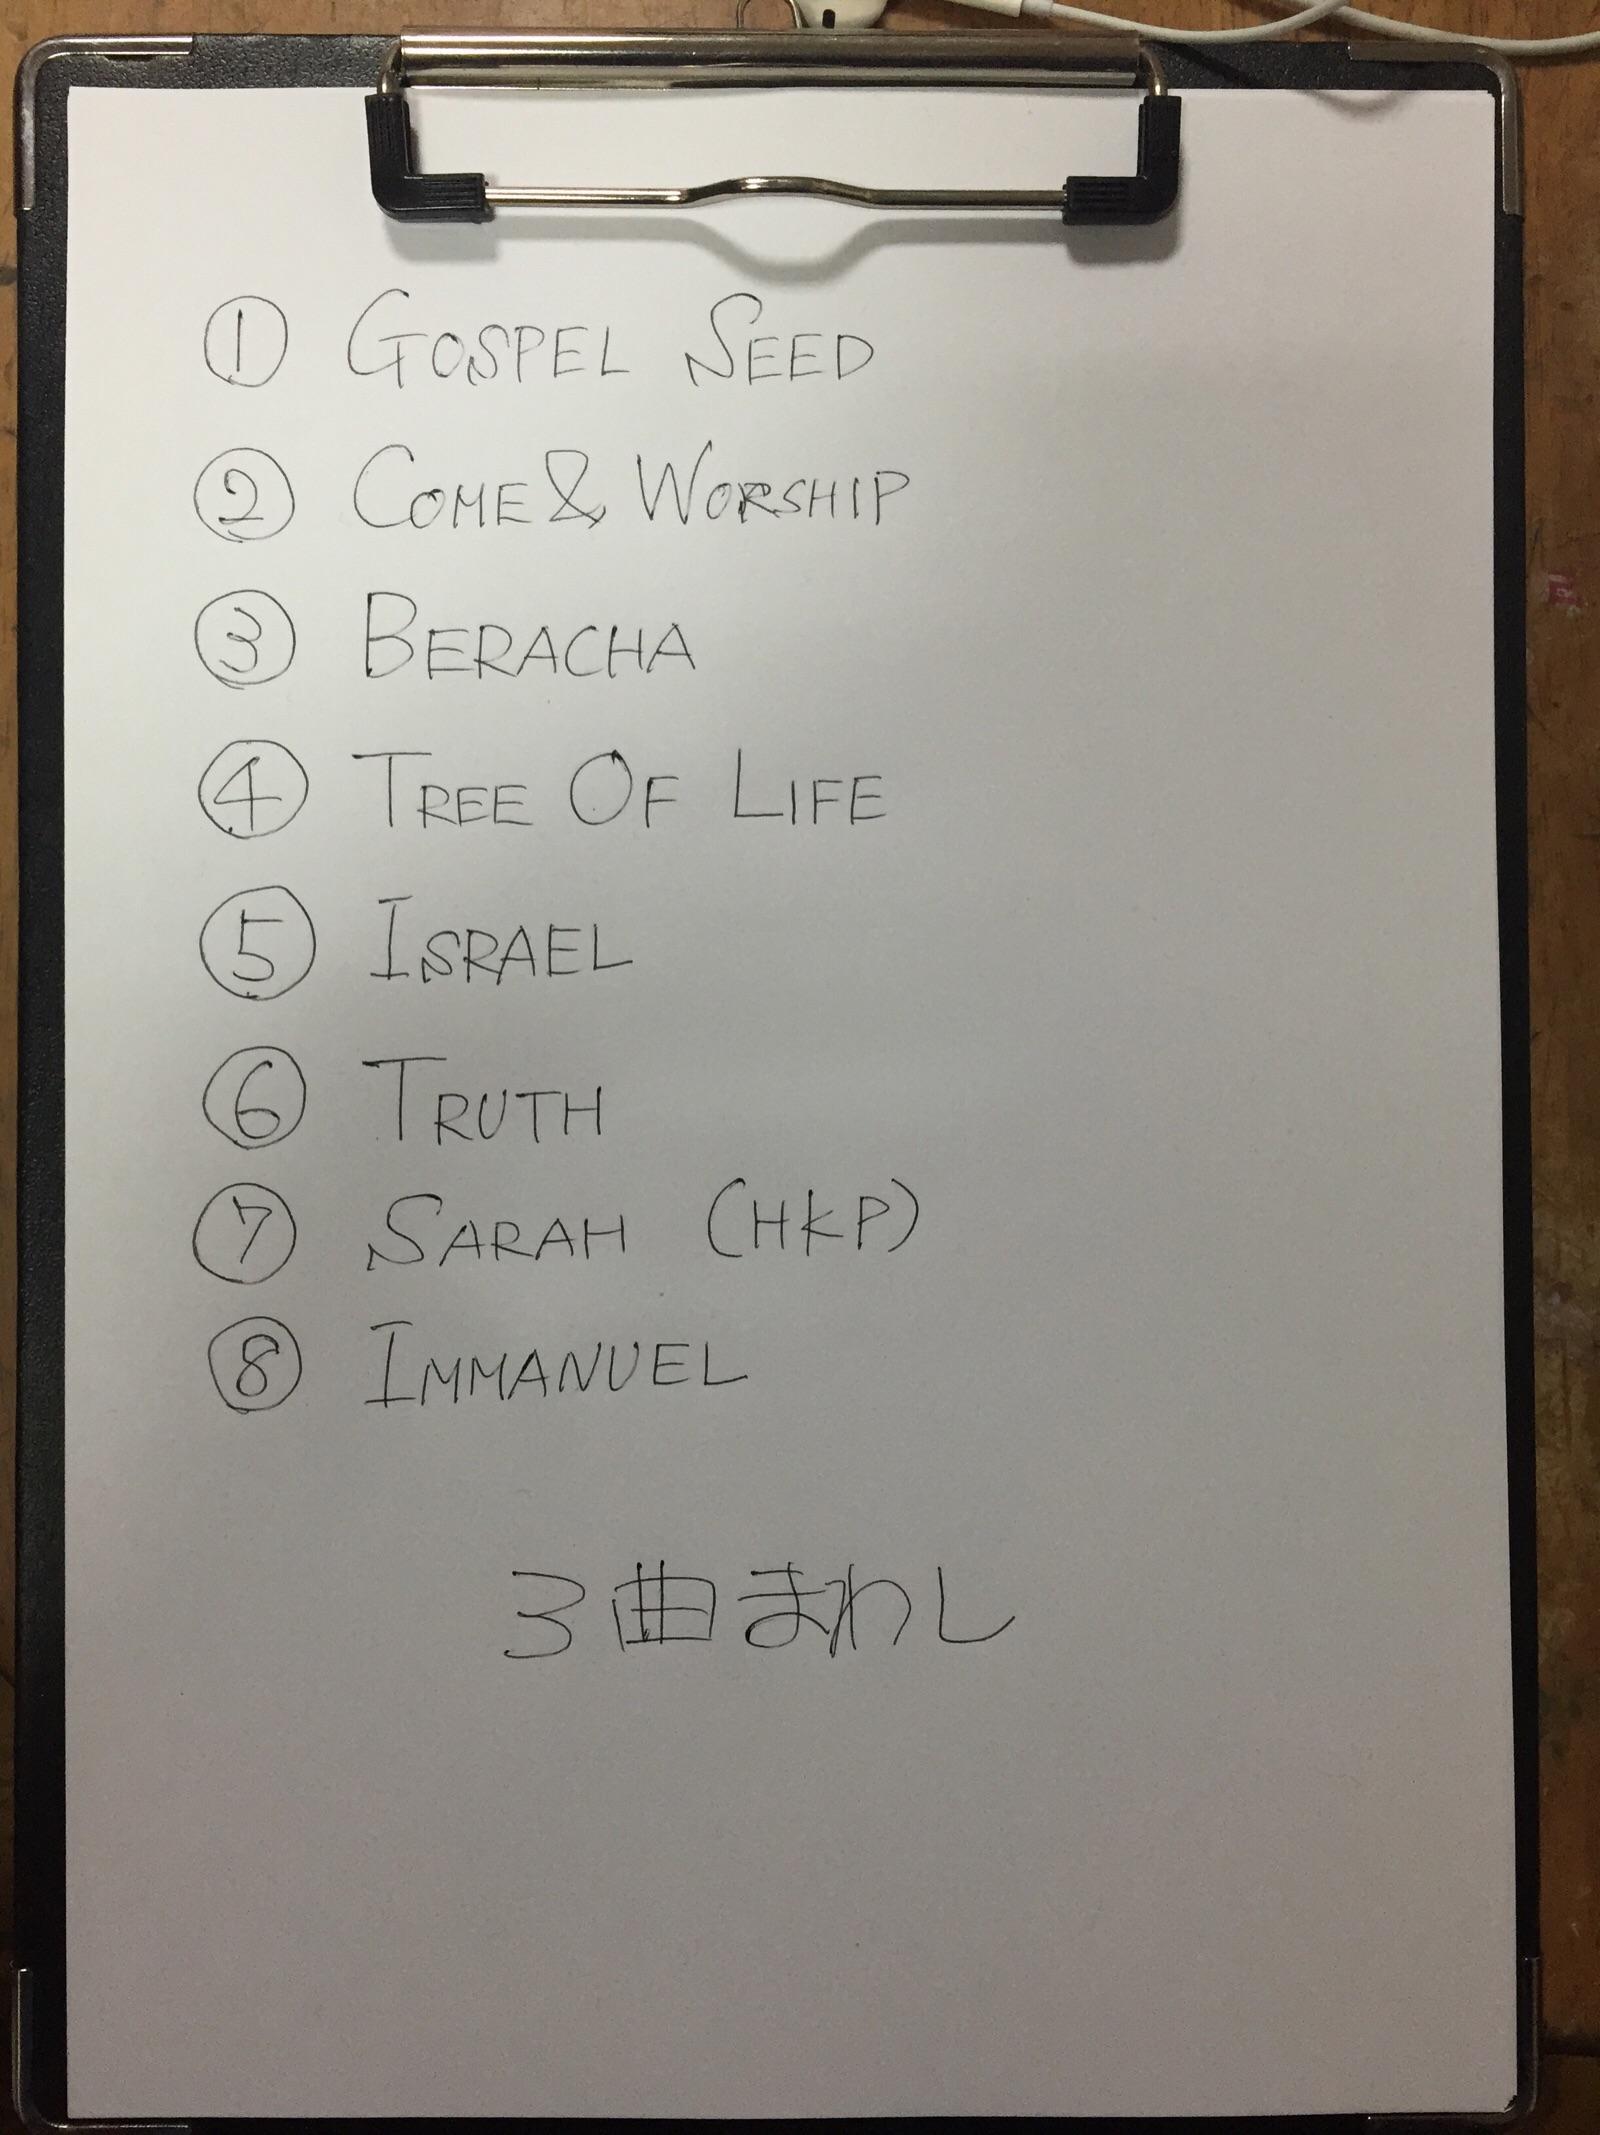 ① GOSPEL SEED
② COME & WORSHIP
③ BERACHA
④ TREE OF LIFE
⑤ ISRAEL
⑥ TRUTH
⑦ SARAH (HKP)
⑧ IMMANUEL
3曲まわし